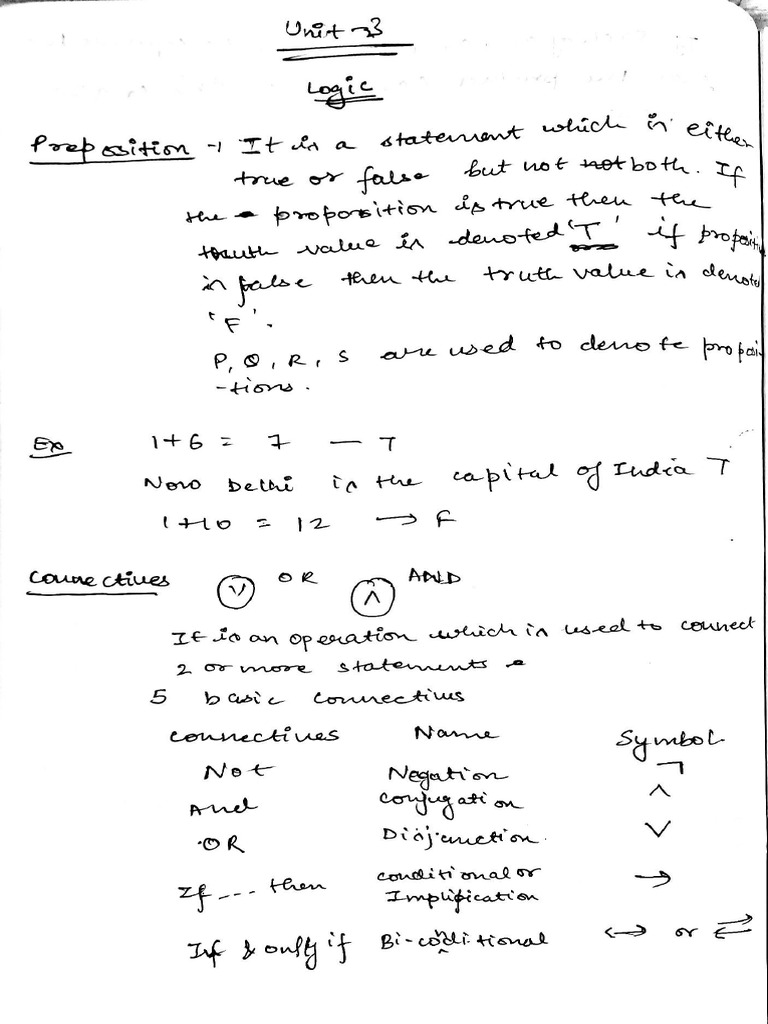 Unit → 3
Logic
Preposition → It is a statement which is either
true or false but not not both. If
the proporition is true then the
truth value is denoted 'T' if propositi
is false then the truth value is denoted
'F'.
P, Q, R, S are used to denote proposi
-tions.
Ex 1+6 = 7 — T
New Delhi is the capital of India T
1+10 = 12 → F
Connectives ∨ OR ∧ AND
It is an operation which is used to connect
2 or more statements
5 basic connectives
Connectives Name Symbol
Not Negation ¬
And Conjugation ∧
OR Disjunction ∨
If --- then conditional or → 
Implification
If & only if Bi-conditional ↔ or ⇄